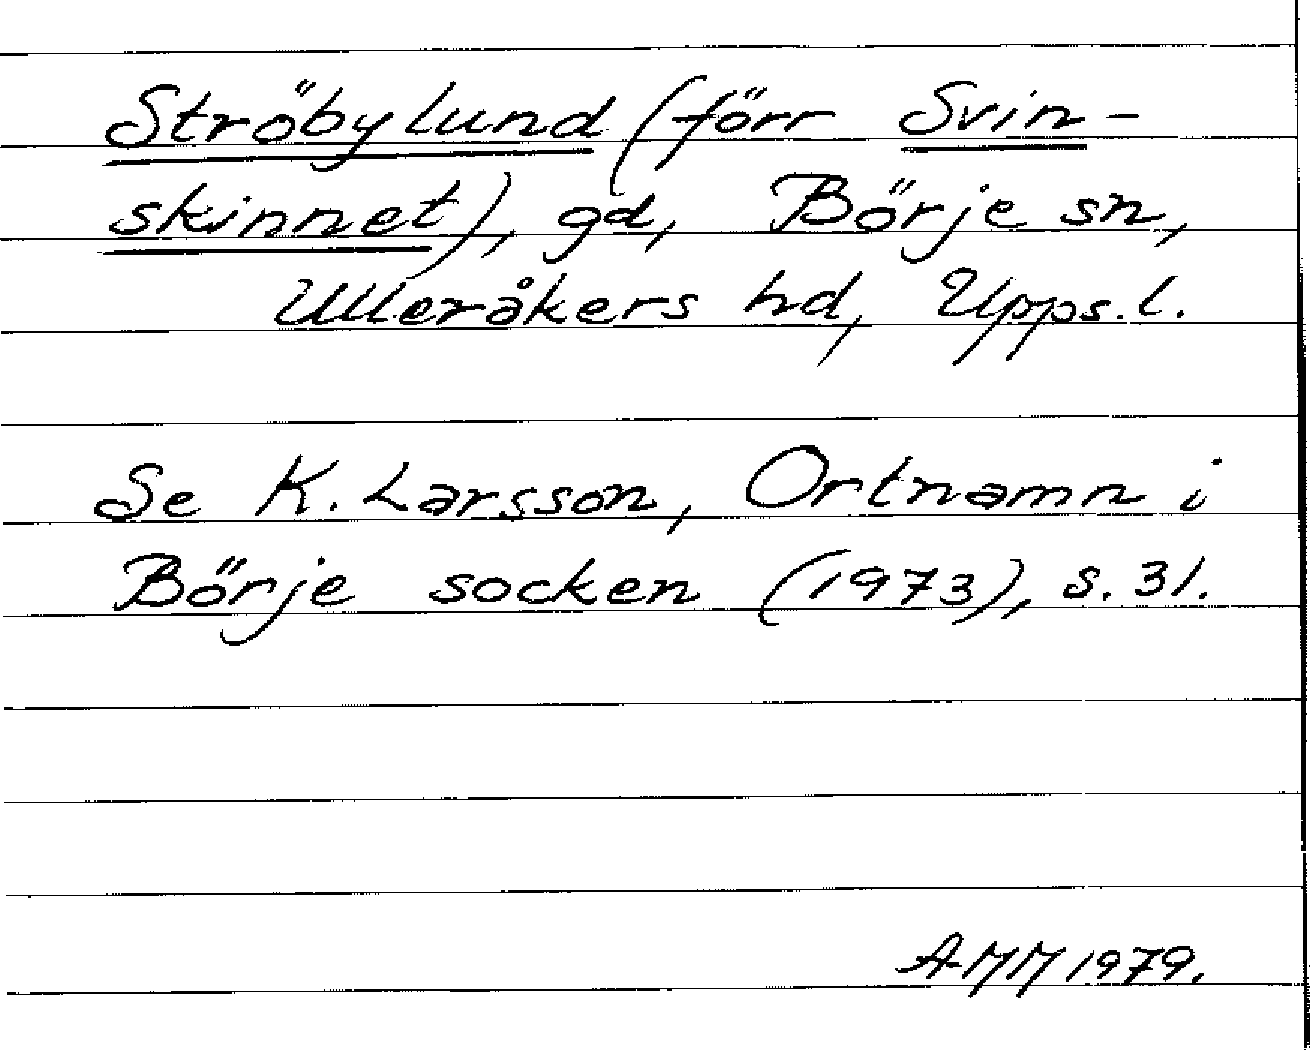 Ströbylund (förr Svin-
skinnet), gd, Börje sn,
Ulleråkers hd, Upps.l.
Se K. Larsson, Ortnamn i
Börje socken (1973), s. 31.
AMM 1979.